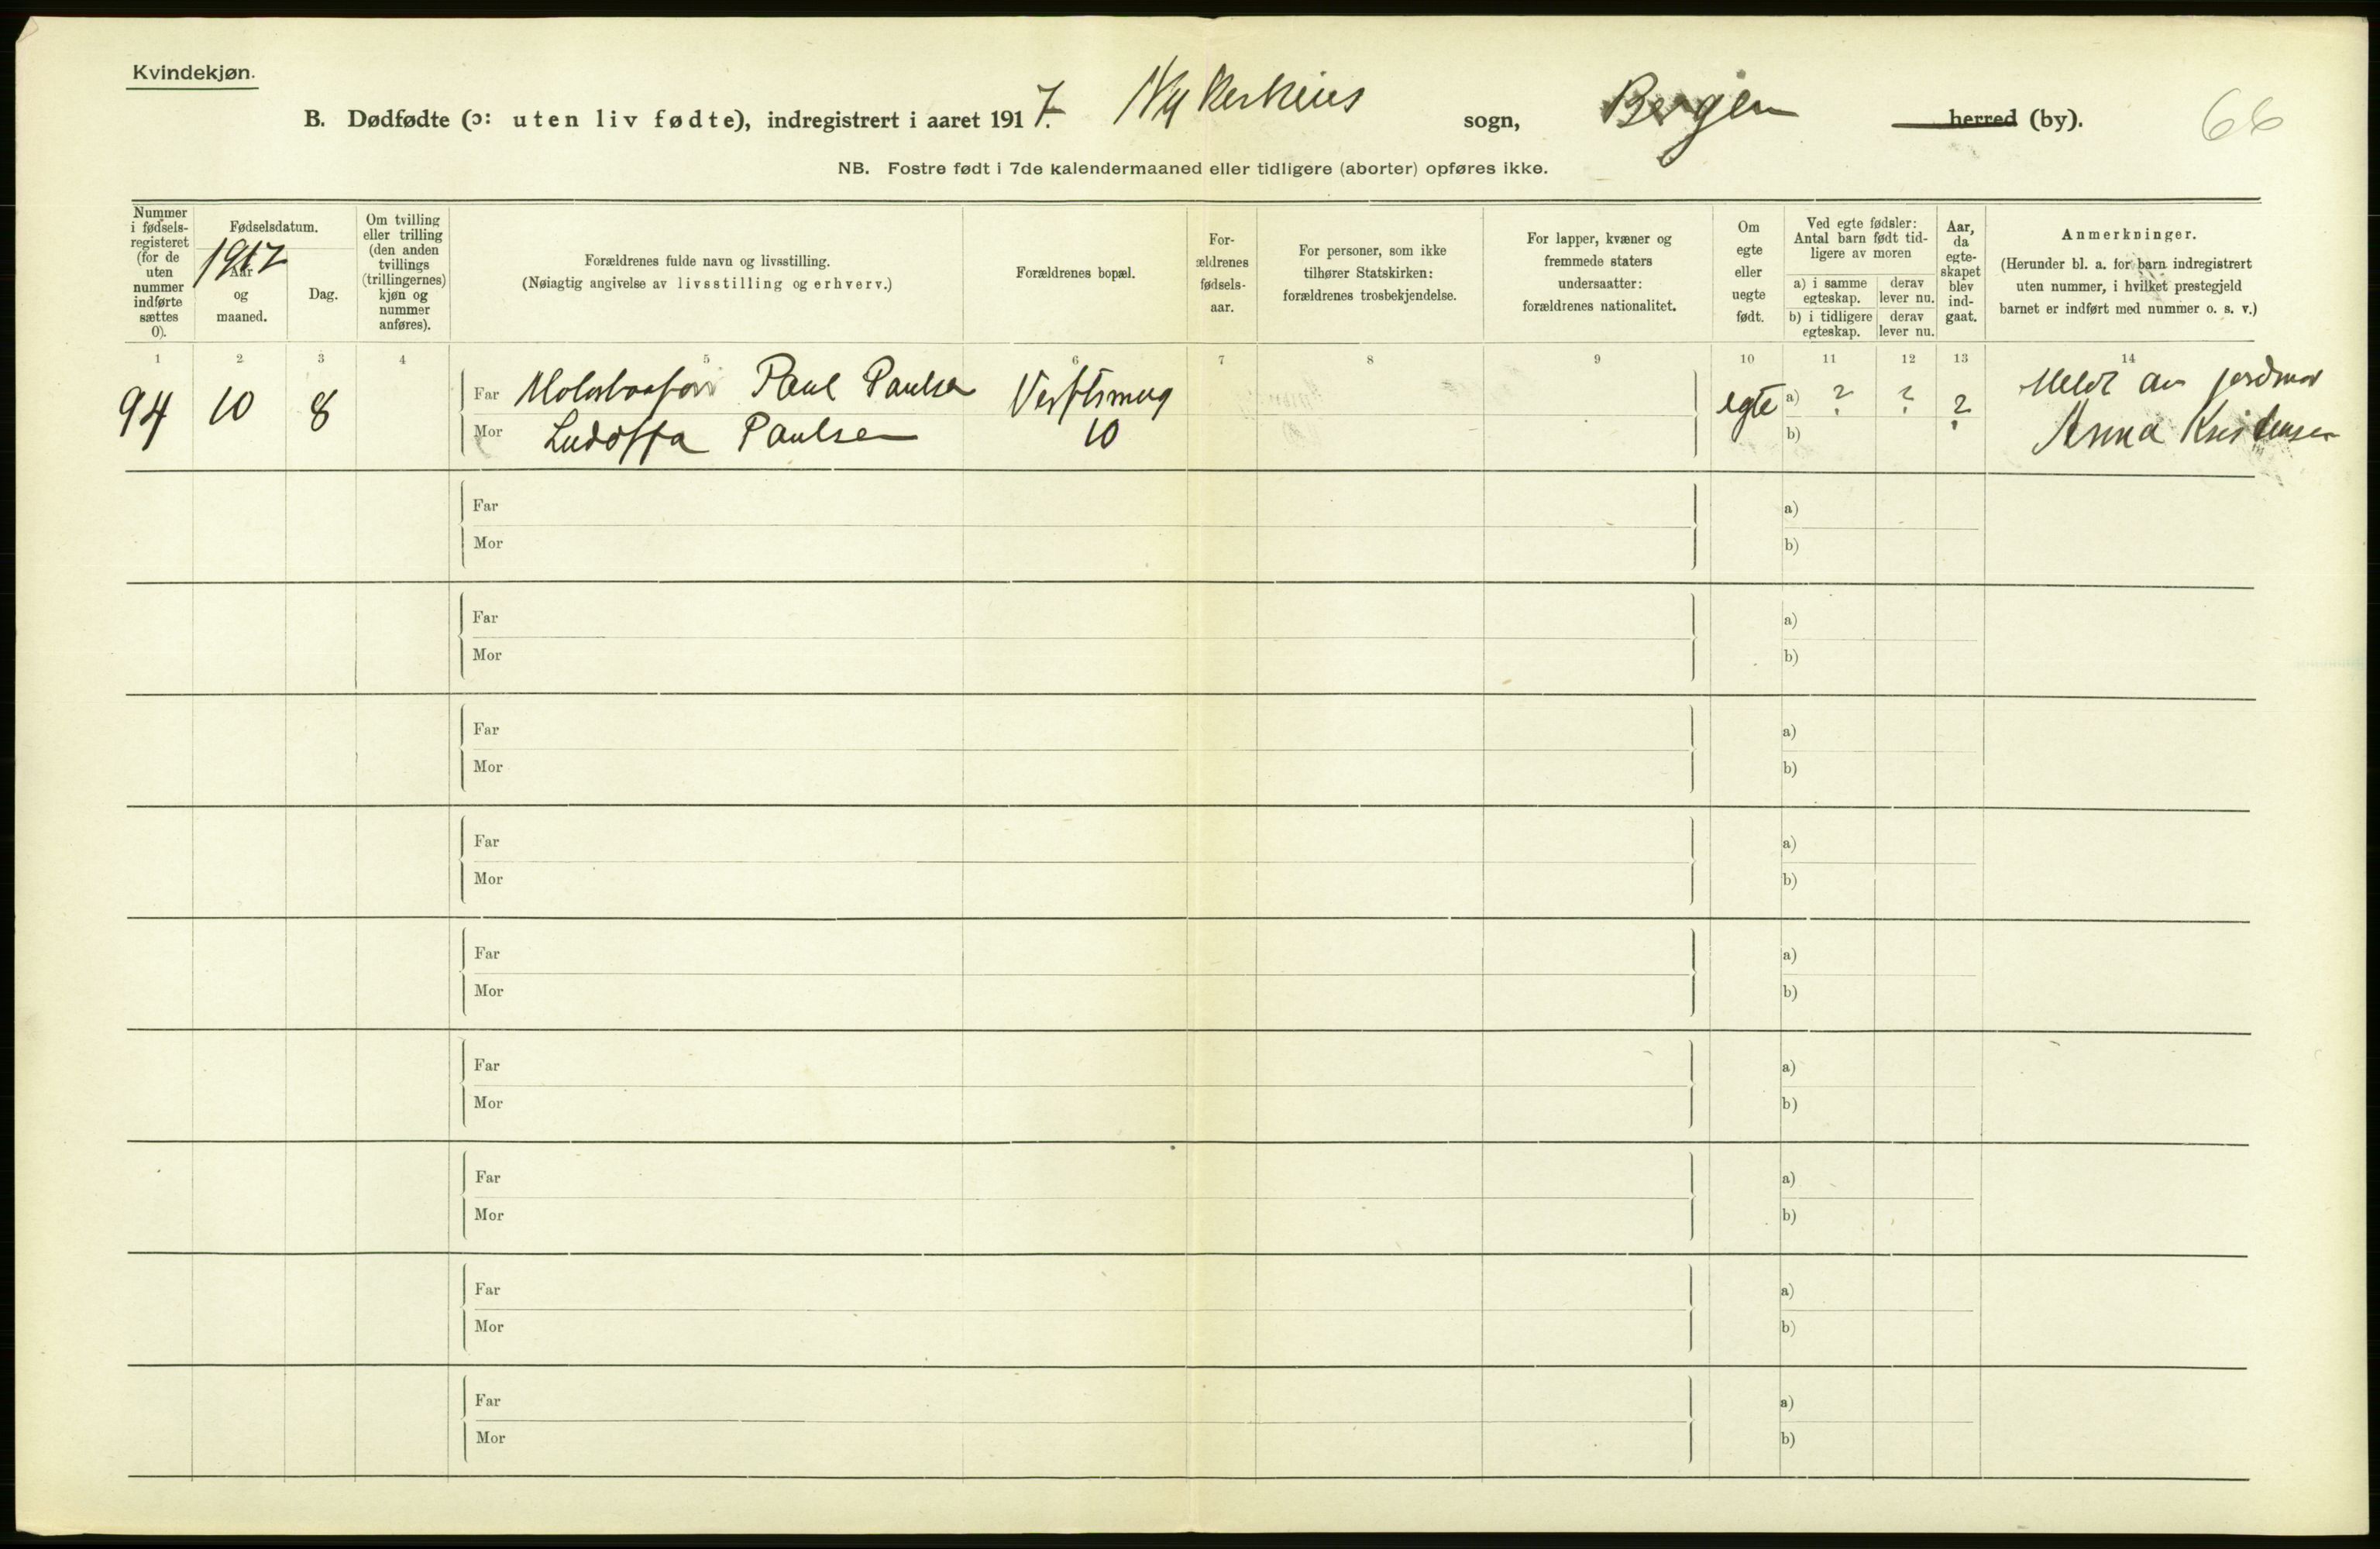 Kvindekjøn.
B. Dødfødte (ɔ: uten liv fødte), indregistrert i aaret 1917. Nykerkius sogn, Bergen herred (by). 66
NB. Fostre født i 7de kalendermaaned eller tidligere (aborter) opføres ikke.
Nummer i fødsels-registeret (for de uten nummer indførte sættes 0).
Fødselsdatum.
1917
Aar og maaned.
Dag.
Om tvilling eller trilling (den anden tvillings (trillingernes) kjøn og nummer anføres).
Forældrenes fulde navn og livsstilling.
(Nøiagtig angivelse av livsstilling og erhverv.)
Forældrenes bopæl.
For-ældrenes fødsels-aar.
For personer, som ikke tilhører Statskirken: forældrenes trosbekjendelse.
For lapper, kvæner og fremmede staters undersaatter: forældrenes nationalitet.
Om egte eller uegte født.
Ved egte fødsler: Antal barn født tid-ligere av moren
a) i samme egteskap.
derav lever nu.
b) i tidligere egteskap.
derav lever nu.
Aar, da egte-skapet blev ind-gaat.
Anmerkninger.
(Herunder bl. a. for barn indregistrert uten nummer, i hvilket prestegjeld barnet er indført med nummer o. s. v.)
1 2 3 4 5 6 7 8 9 10 11 12 13 14
94 10 8 Far Paul Paulsen egte a) ? ? ? Meldt av jordmor
Mor Paulsen 10 b) Anna Kristensen
Far a)
Mor b)
Far a)
Mor b)
Far a)
Mor b)
Far a)
Mor b)
Far a)
Mor b)
Far a)
Mor b)
Far a)
Mor b)
Far a)
Mor b)
Far a)
Mor b)